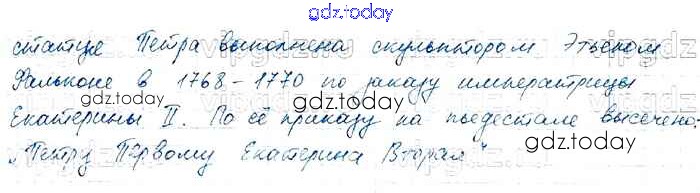 gdz.today
статуе Петра выполнена скульптором Этьеном
Фальконе в 1768-1770 по заказу императрицы
gdz.today
gdz.today
Екатерины II. По её приказу на пьедестале высечено:
gdz.today
„Петру Первому Екатерина Вторая"